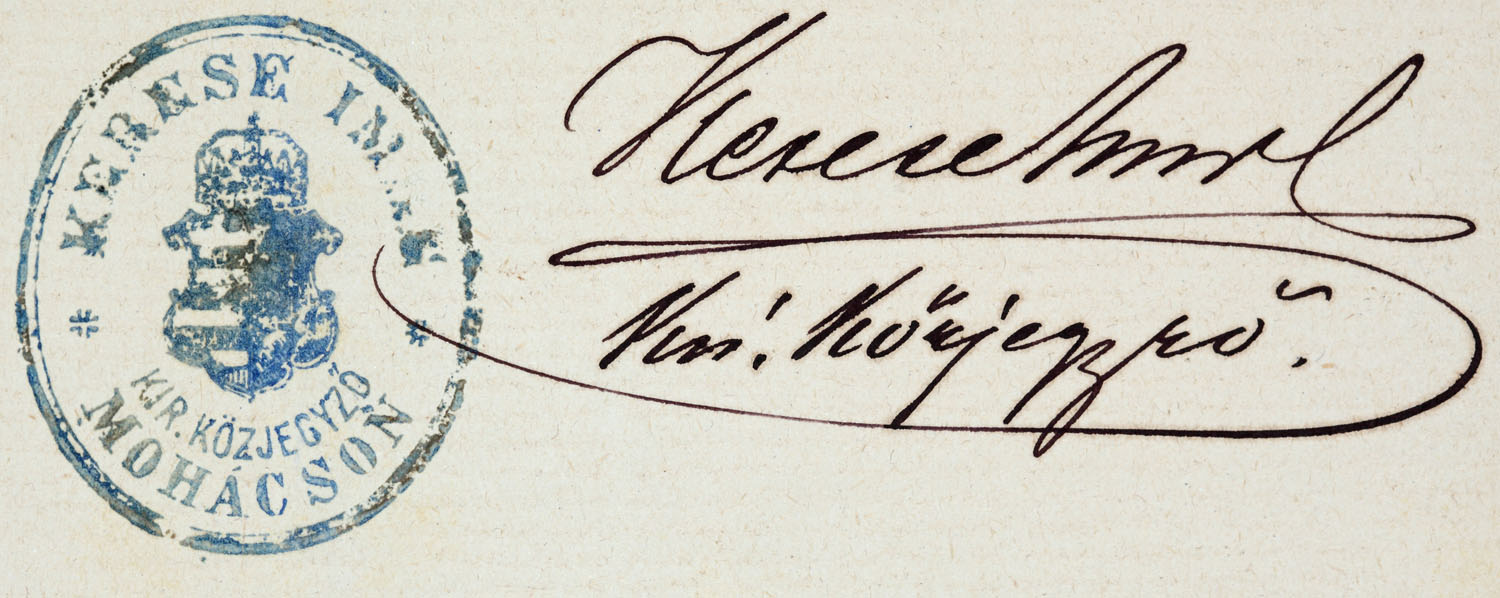 KERESE
KIR. KÖZJEGYZŐ
MOHÁCSON
Kerese Imre
Kir. Közjegyző.